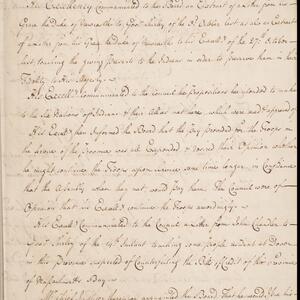 His Excellency Communicated to the Board an Extract of a Letter from his
Grace the Duke of Newcastle to Govr. Shirley of the 3d. October last as also an Extract
of a Letter from his Grace the Duke of Newcastle to his Excelly. of the 27th. October
last touching the giving Presents to the Indians in order to preserve them in their
Fidelity to His Majesty.
His Excelly. Communicated to the Council the Propositions he intended to make
to the Six Nations of Indians & their Allies
His Excelly. then informed the Board that the Pay provided for the Troops in
the Service of the Province was all Expended & desired their Opinion whether
he might continue the Troops upon service some time longer, in Confidence
that the Assembly when they met would pay them. The Council were of
Opinion that his Excelly. continue the Troops accordingly.
His Excelly. Communicated to the Council a Letter from John Chandler to
Govr. Shirley of the 14th. Instant touching some people resident at Dover in
this Province suspected of Counterfeiting the Bills of Credit of the Province
of Massachusetts Bay
the Board